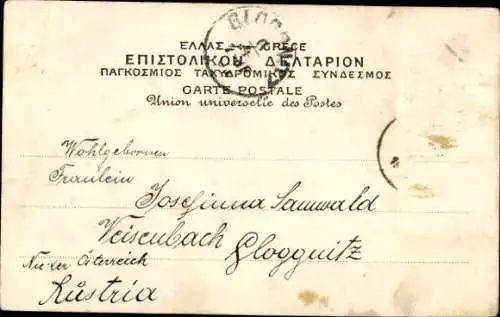 ΕΛΛΑΣ GRÈCE
ΕΠΙΣΤΟΛΙΚΟΝ ΔΕΛΤΑΡΙΟΝ
ΠΑΓΚΟΣΜΙΟΣ ΤΑΧΥΔΡΟΜΙΚΟΣ ΣΥΝΔΕΣΜΟΣ
CARTE POSTALE
Union universelle des Postes
Wohlgeboren
Fräulein
Josefinna Samwald
Weisenbach Gloggnitz
Österreich
Austria